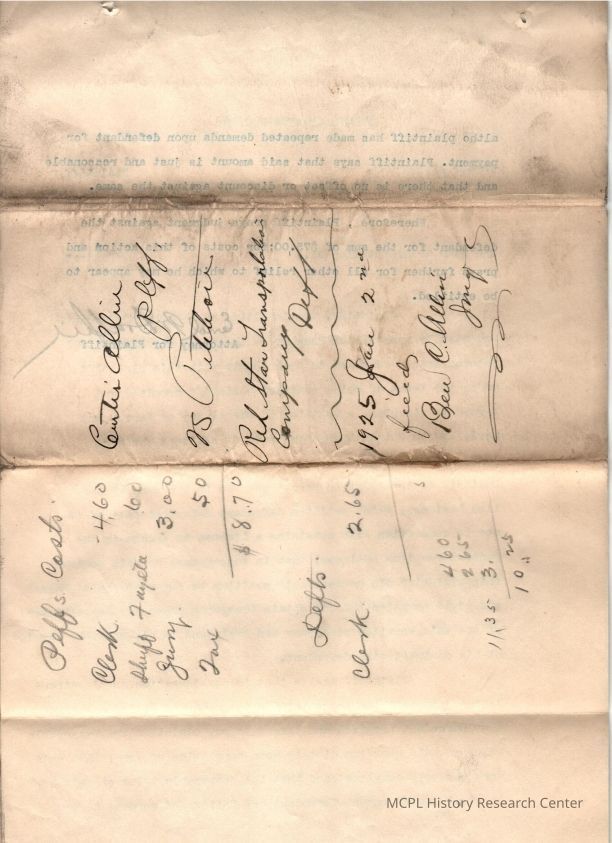 altho plaintiff has made repeated demands upon defendant for
payment. Plaintiff says that said amount is just and reasonable
and that there is no offset or discount against the same.
Therefore, Plaintiff judgment against the
defendant for the sum of $75.00 costs of this action and
further for all other relief to which he may appear to
be entitled.
Attorney for Plaintiff
Curtis Allin
Plff
vs Petition
Red Star Transportation
Company Deft
1925 Jan 2nd
filed
Ben C. Allin
Plffs Costs
Clerk 4.60
Shff 60
Jury 3.00
Tax 50
$ 8.70
Defts.
Clerk 2.65
460
265
3.
10.25
11.35
MCPL History Research Center